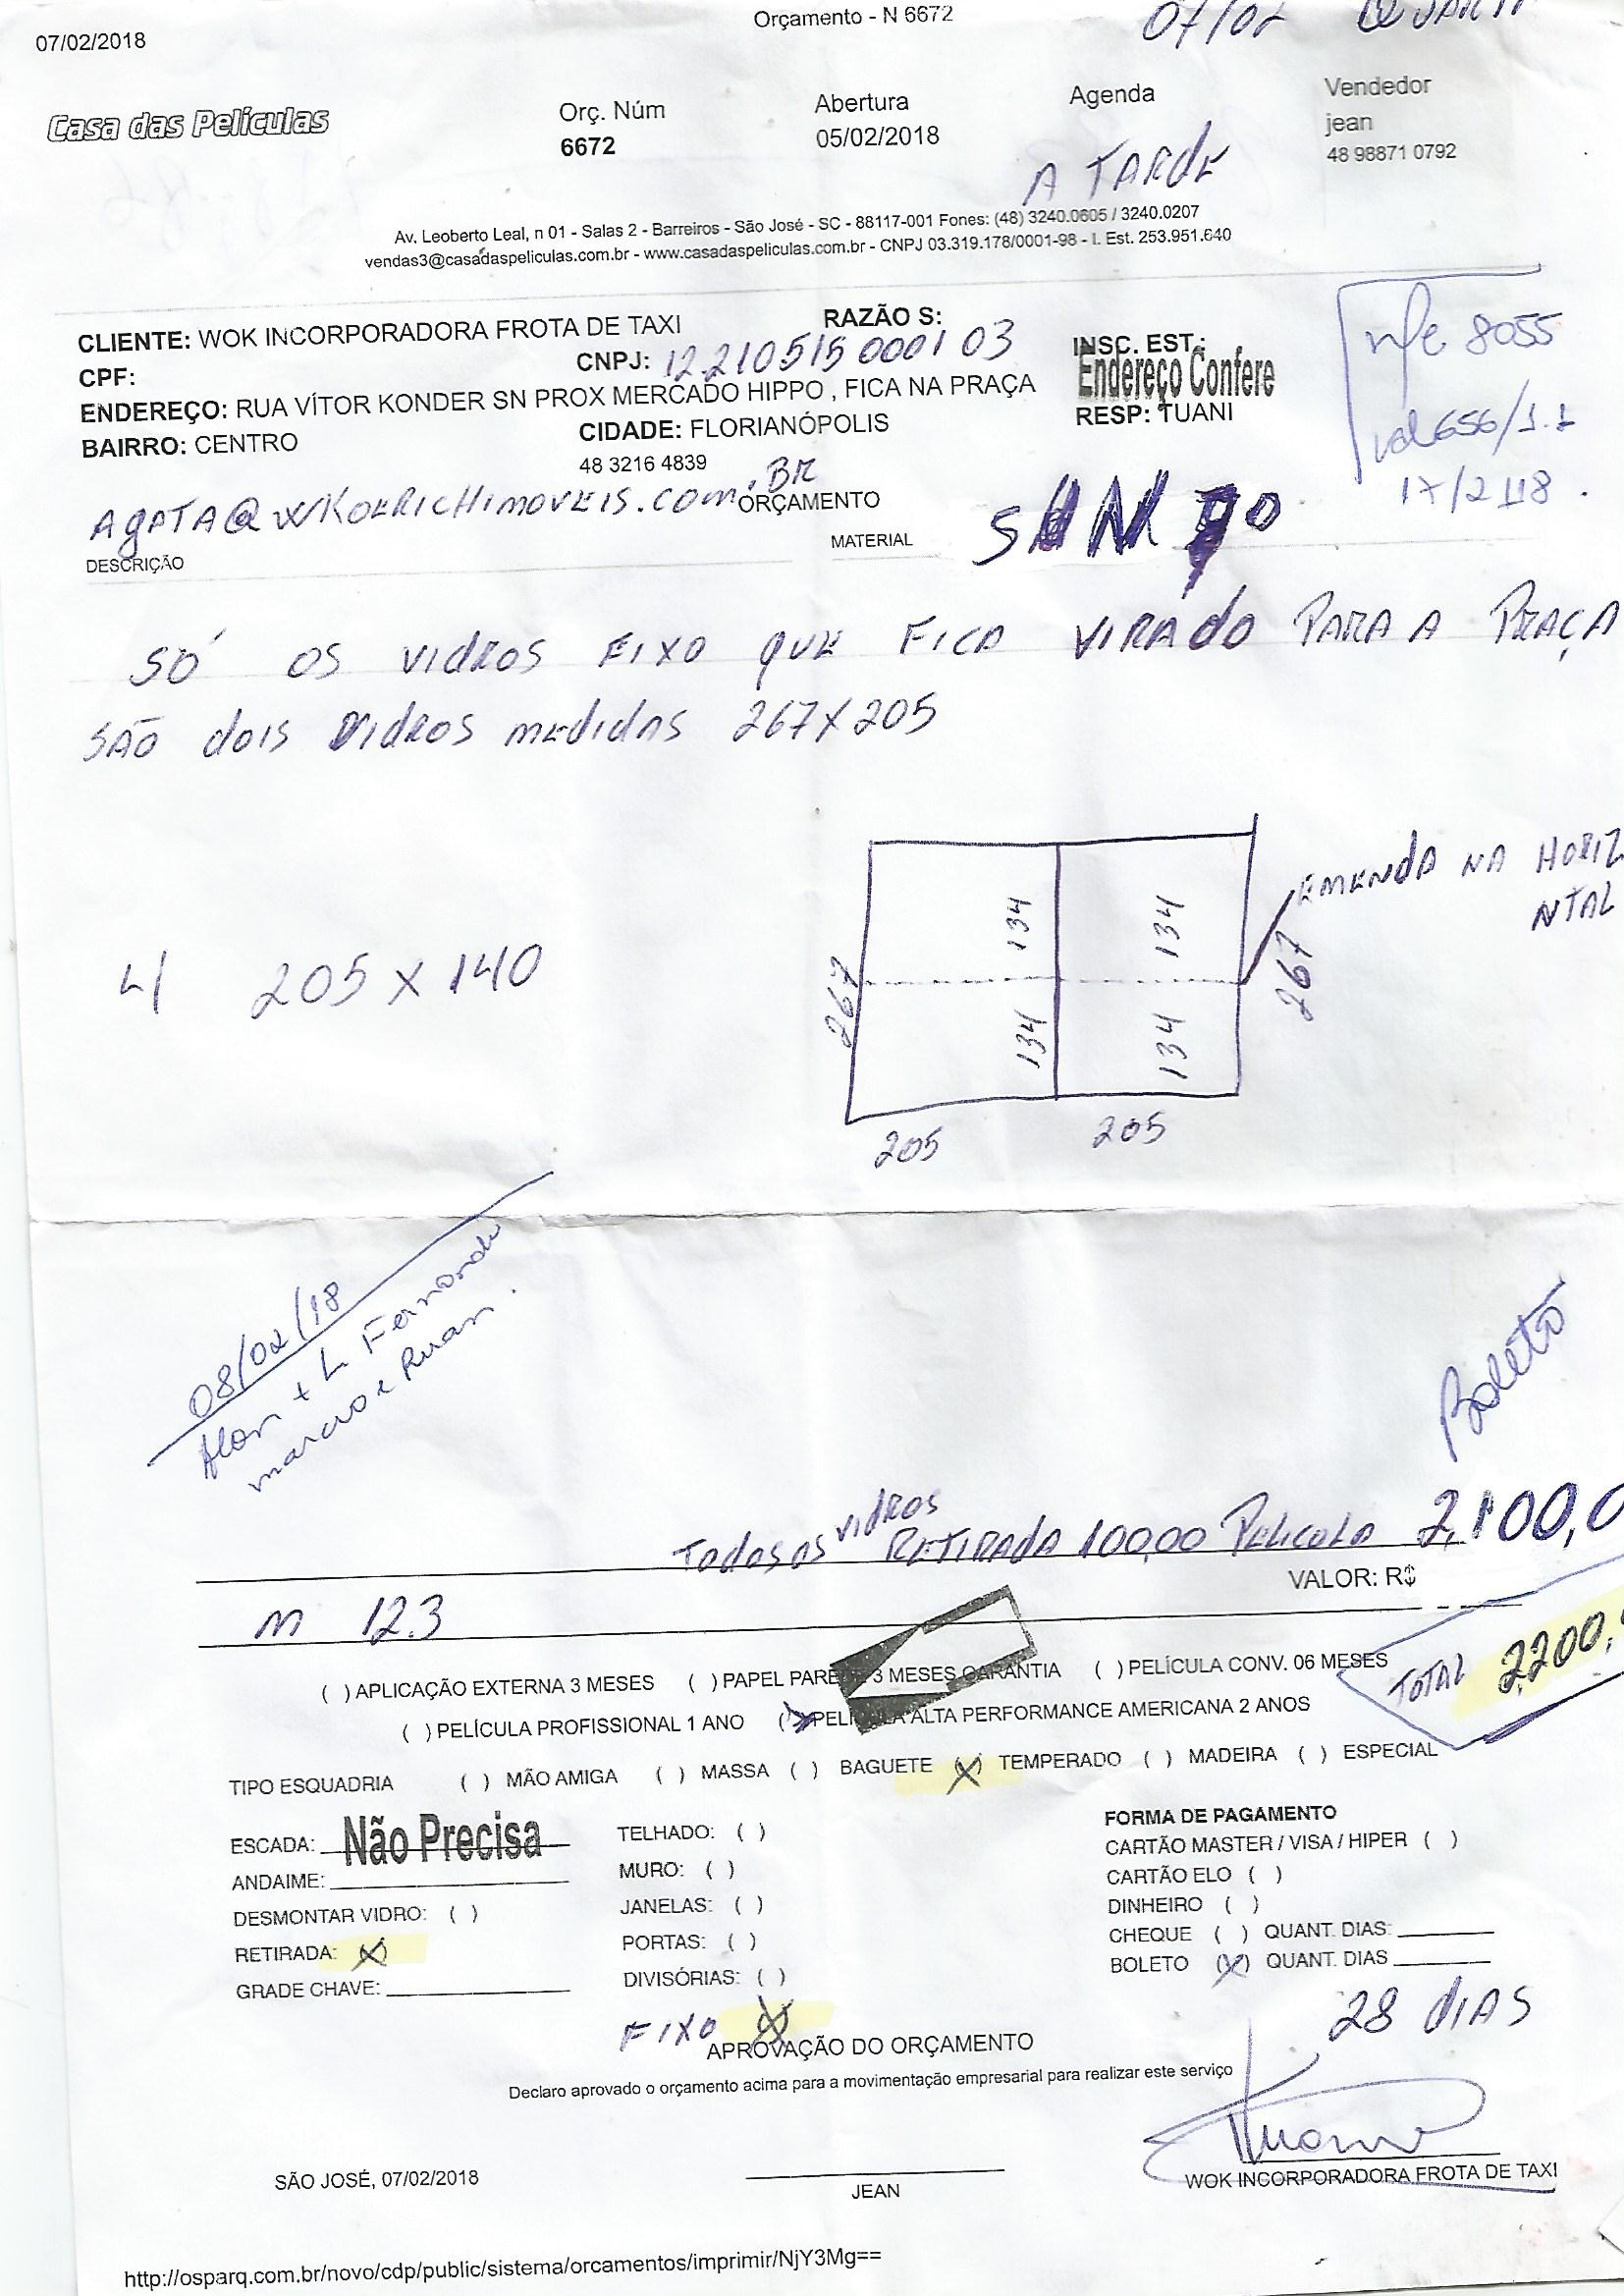 Orçamento - N 6672
07/02/2018
07/02
Casa das Películas
Orç. Núm
6672
Abertura
05/02/2018
Agenda
A TARDE
Vendedor
jean
48 98871 0792
Av. Leoberto Leal, n 01 - Salas 2 - Barreiros - São José - SC - 88117-001 Fones: (48) 3240.0605 / 3240.0207
vendas3@casadaspeliculas.com.br - www.casadaspeliculas.com.br - CNPJ 03.319.178/0001-98 - I. Est. 253.951.640
CLIENTE: WOK INCORPORADORA FROTA DE TAXI RAZÃO S:
CPF: CNPJ: 12.210515 0001 03 INSC. EST.:
Endereço Confere
ENDEREÇO: RUA VÍTOR KONDER SN PROX MERCADO HIPPO , FICA NA PRAÇA RESP: TUANI
BAIRRO: CENTRO CIDADE: FLORIANÓPOLIS
48 3216 4839
nfe 8055
17/2/18
AgATA@WKOERICHIMOVEIS.COM.BR
ORÇAMENTO
DESCRIÇÃO MATERIAL
70
SÓ OS VIDROS FIXO QUE FICA VIRADO PARA A PRAÇA
SÃO DOIS VIDROS MEDIDAS 267X205
EMENDA NA HORIZ
NTAL
134 134
4/ 205 X 140
267 267
134 134
205 205
08/02/18
Alan + L Fernando
marcio e Ruan.
Boleto
TODOS OS VIDROS RETIRADA 100,00 PELICULA 2.100,0
VALOR: R$
M 12.3
TOTAL 2.200,
( ) APLICAÇÃO EXTERNA 3 MESES ( ) PAPEL PAREDE 3 MESES GARANTIA ( ) PELÍCULA CONV. 06 MESES
( ) PELÍCULA PROFISSIONAL 1 ANO (X) PELÍCULA ALTA PERFORMANCE AMERICANA 2 ANOS
TIPO ESQUADRIA ( ) MÃO AMIGA ( ) MASSA ( ) BAGUETE (X) TEMPERADO ( ) MADEIRA ( ) ESPECIAL
ESCADA: Não Precisa
ANDAIME:
DESMONTAR VIDRO: ( )
RETIRADA: (X)
GRADE CHAVE:
TELHADO: ( )
MURO: ( )
JANELAS: ( )
PORTAS: ( )
DIVISÓRIAS: ( )
FIXO (X)
FORMA DE PAGAMENTO
CARTÃO MASTER / VISA / HIPER ( )
CARTÃO ELO ( )
DINHEIRO ( )
CHEQUE ( ) QUANT. DIAS:
BOLETO (X) QUANT. DIAS
28 DIAS
APROVAÇÃO DO ORÇAMENTO
Declaro aprovado o orçamento acima para a movimentação empresarial para realizar este serviço
SÃO JOSÉ, 07/02/2018
JEAN
WOK INCORPORADORA FROTA DE TAXI
http://osparq.com.br/novo/cdp/public/sistema/orcamentos/imprimir/NjY3Mg==